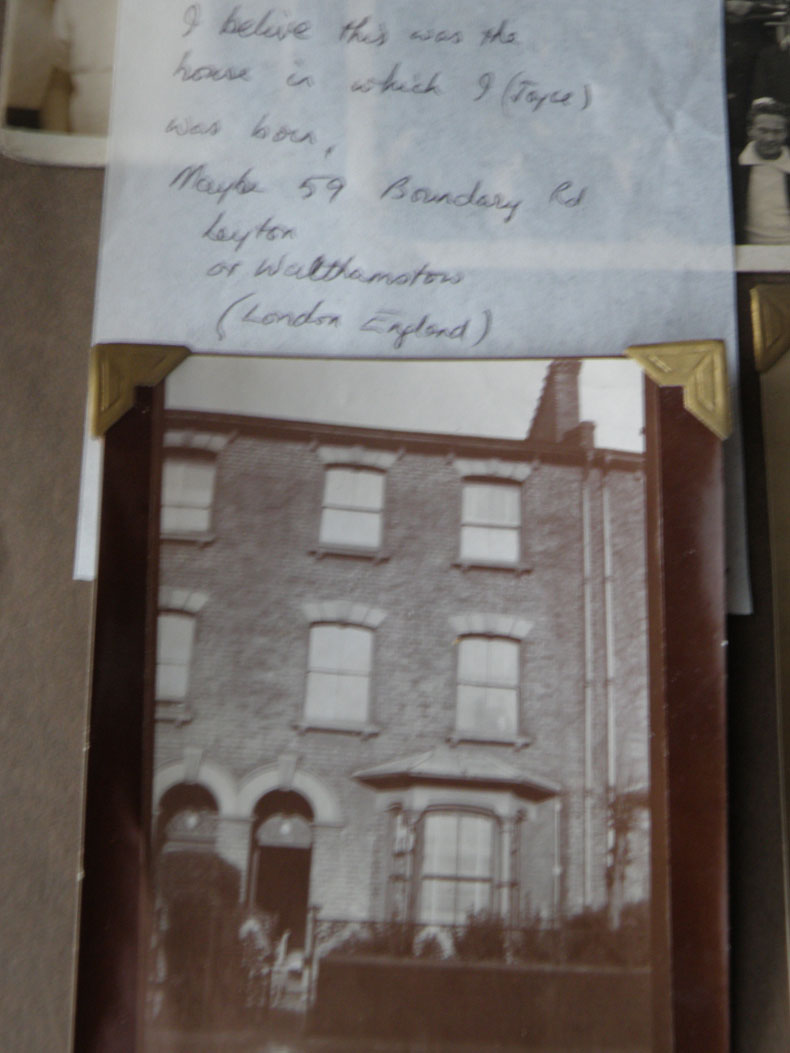 I believe this was the
house in which I (Joyce)
was born,
Maybe 59 Boundary Rd
Leyton
or Walthamstow
(London England)